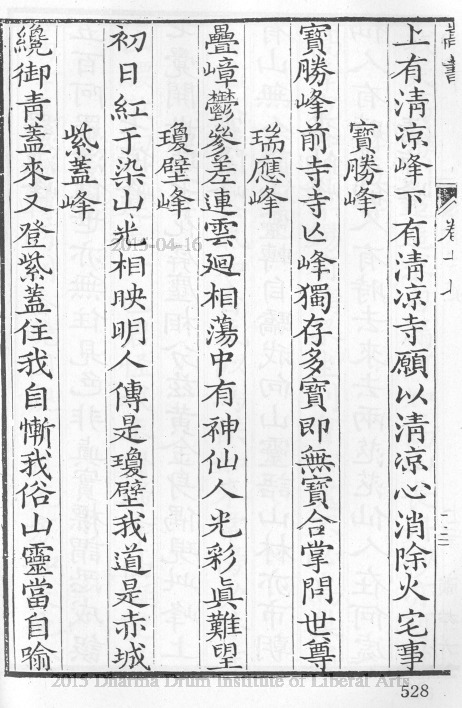 上有淸凉峰下有淸凉寺願以淸凉心消除火宅事
寶勝峰
寶勝峰前寺寺亾峰獨存多寶即無寶合掌問世尊
瑞應峰
疊嶂鬱參差連雲迴相蕩中有神仙人光彩眞難望
瓊壁峰
初日紅于染山光相映明人傳是瓊壁我道是赤城
紫蓋峰
纔御靑蓋來又登紫蓋住我自慚我俗山靈當自喻
卷十
2015-04-16
2015 Dharma Drum Institute of Liberal Arts
528